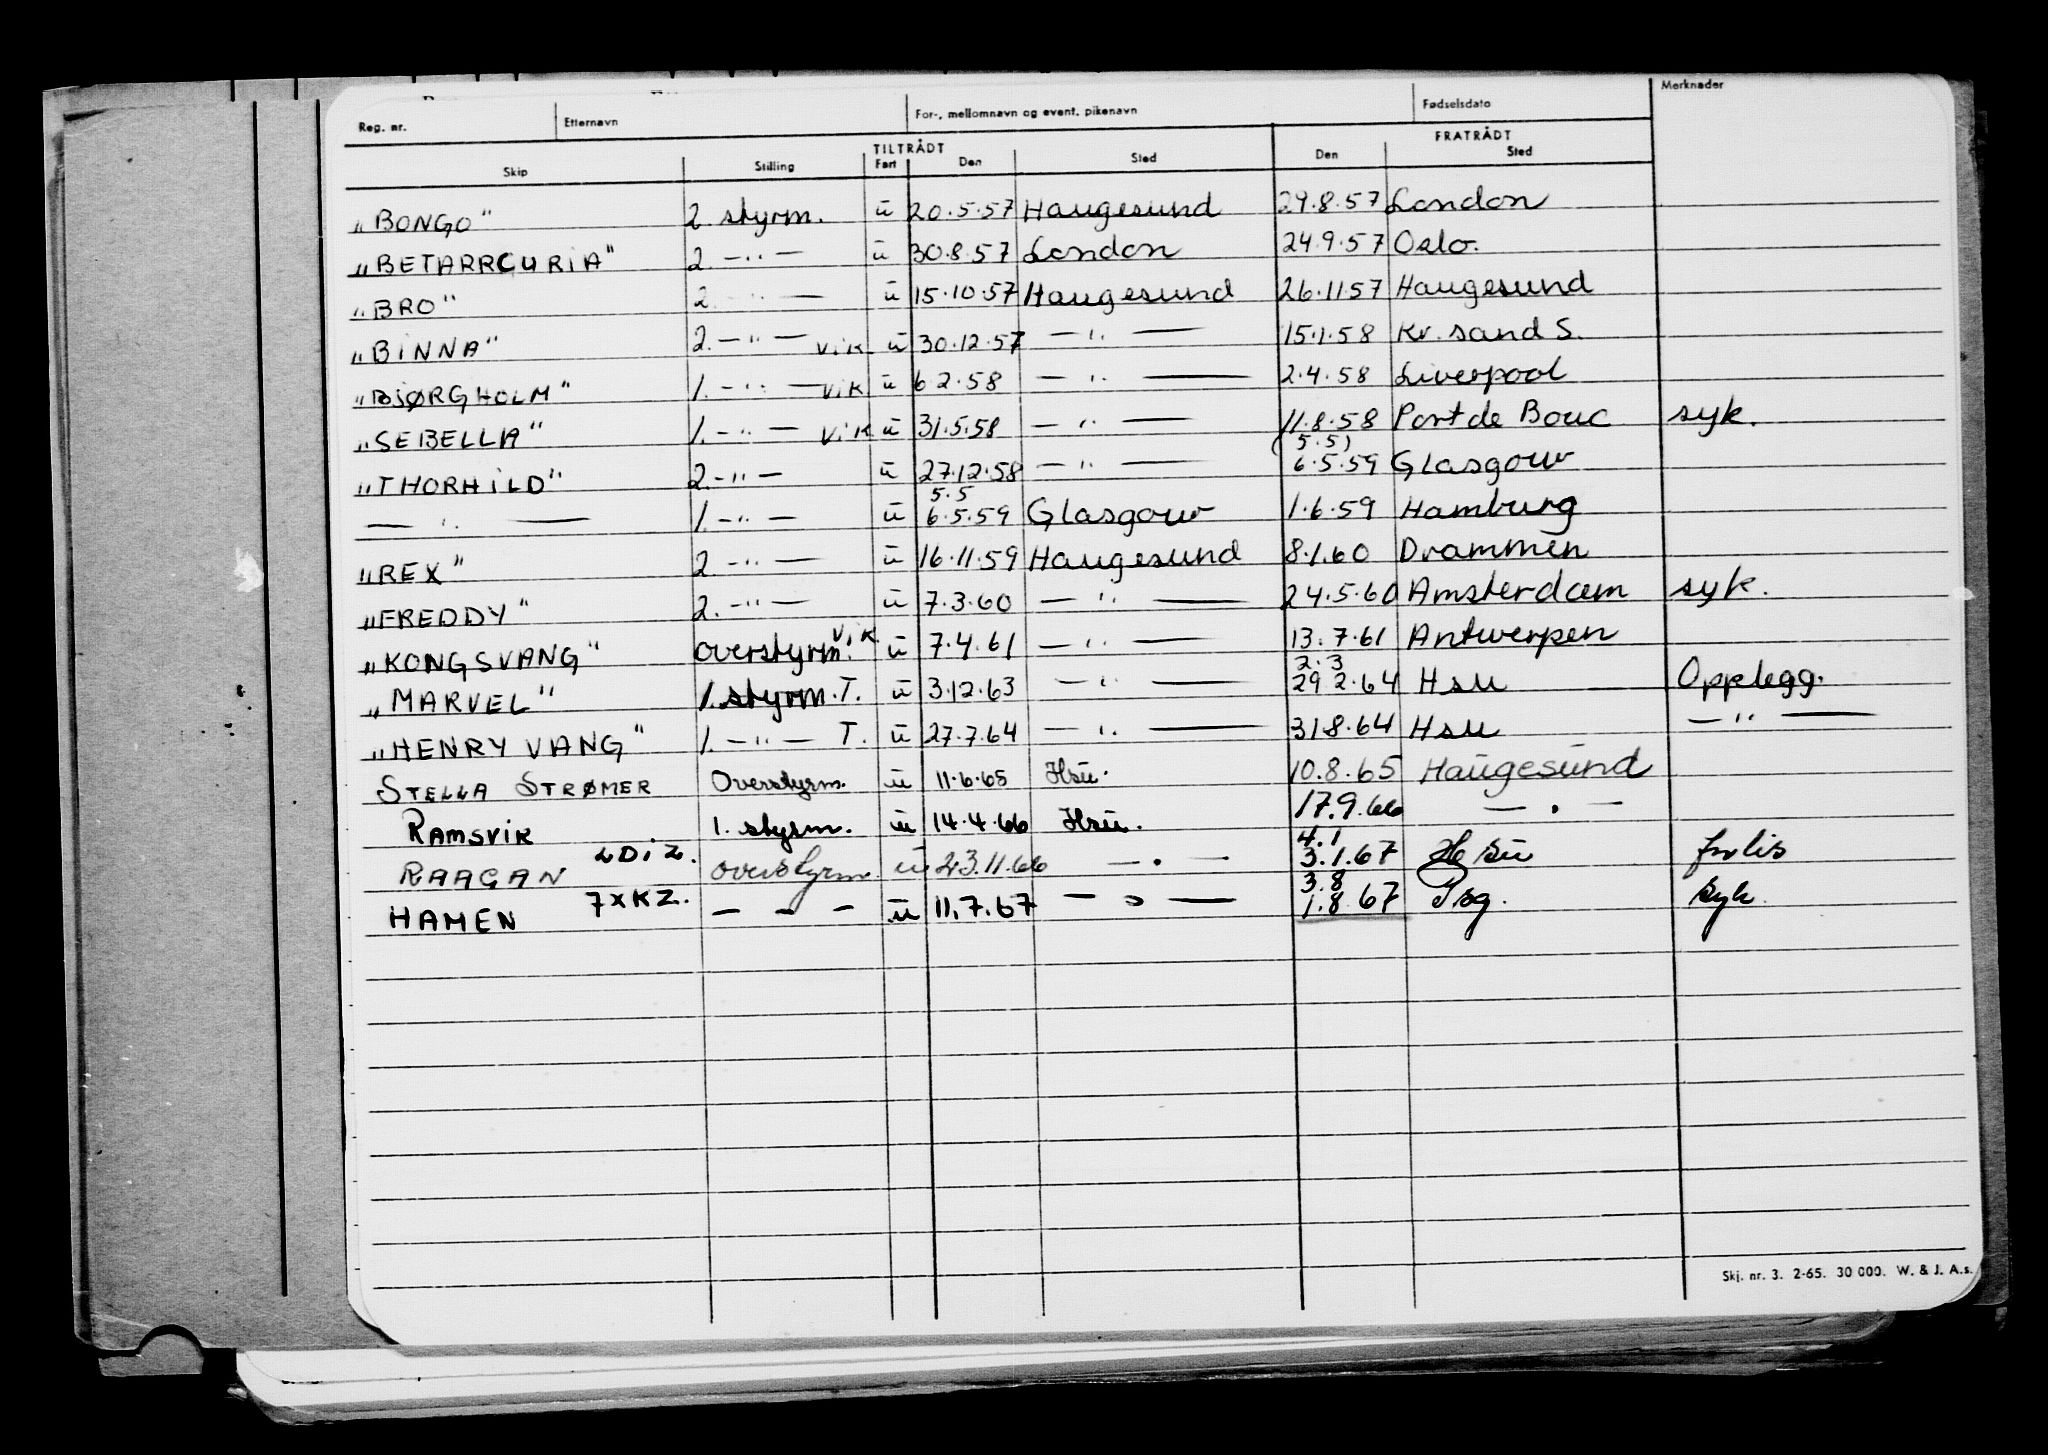 Reg. nr. Etternavn For-, mellomnavn og event. pikenavn Fødselsdato Merknader
TILTRÅDT FRATRÅDT
Skip Stilling Fart Den Sted Den Sted
"BONGO" 2. styrm. u 20.5.57 Haugesund 29.8.57 London
"BETARRCURIA" 2. —"— u 30.8.57 London 24.9.57 Oslo.
"BRO" 2. —"— u 15.10.57 Haugesund 26.11.57 Haugesund
"BINNA" 2. —"— Vik. u 30.12.57 —"— 15.1.58 Kr.sand S.
"BJØRGHOLM" 1. —"— Vik u 6.2.58 —"— 2.4.58 Liverpool
"SEBELLA" 1. —"— Vik u 31.5.58 —"— 11.8.58 Port de Bouc syk.
(5.5)
"THORHILD" 2. —"— u 27.12.58 —"— 6.5.59 Glasgow
5.5
—"— 1. —"— u 6.5.59 Glasgow 1.6.59 Hamburg
"REX" 2. —"— u 16.11.59 Haugesund 8.1.60 Drammen
"FREDDY" 2. —"— u 7.3.60 —"— 24.5.60 Amsterdam syk.
"KONGSVANG" overstyrm. Vik u 7.4.61 —"— 13.7.61 Antwerpen
2.3
"MARVEL" 1. styrm. T. u 3.12.63 —"— 29 2.64 Hsu Opplegg.
"HENRY VANG" 1. —"— T. u 27.7.64 —"— 31.8.64 Hsu —"—
STELLA STRØMER Overstyrm. u 11.6.65 Hsu. 10.8.65 Haugesund
RAMSVIK 1. styrm. u 14.4.66 Hsu. 17.9.66 —.—
4.1
RAAGAN LDIZ. overstyrm. u 23.11.66 —.— 3.1.67 Hsu forlis
3.8
HAMEN 7XKZ. — — — u 11.7.67 —"— 1.8.67 Psg. syk.
Skj. nr. 3. 2-65. 30 000. W. & J. A.s.